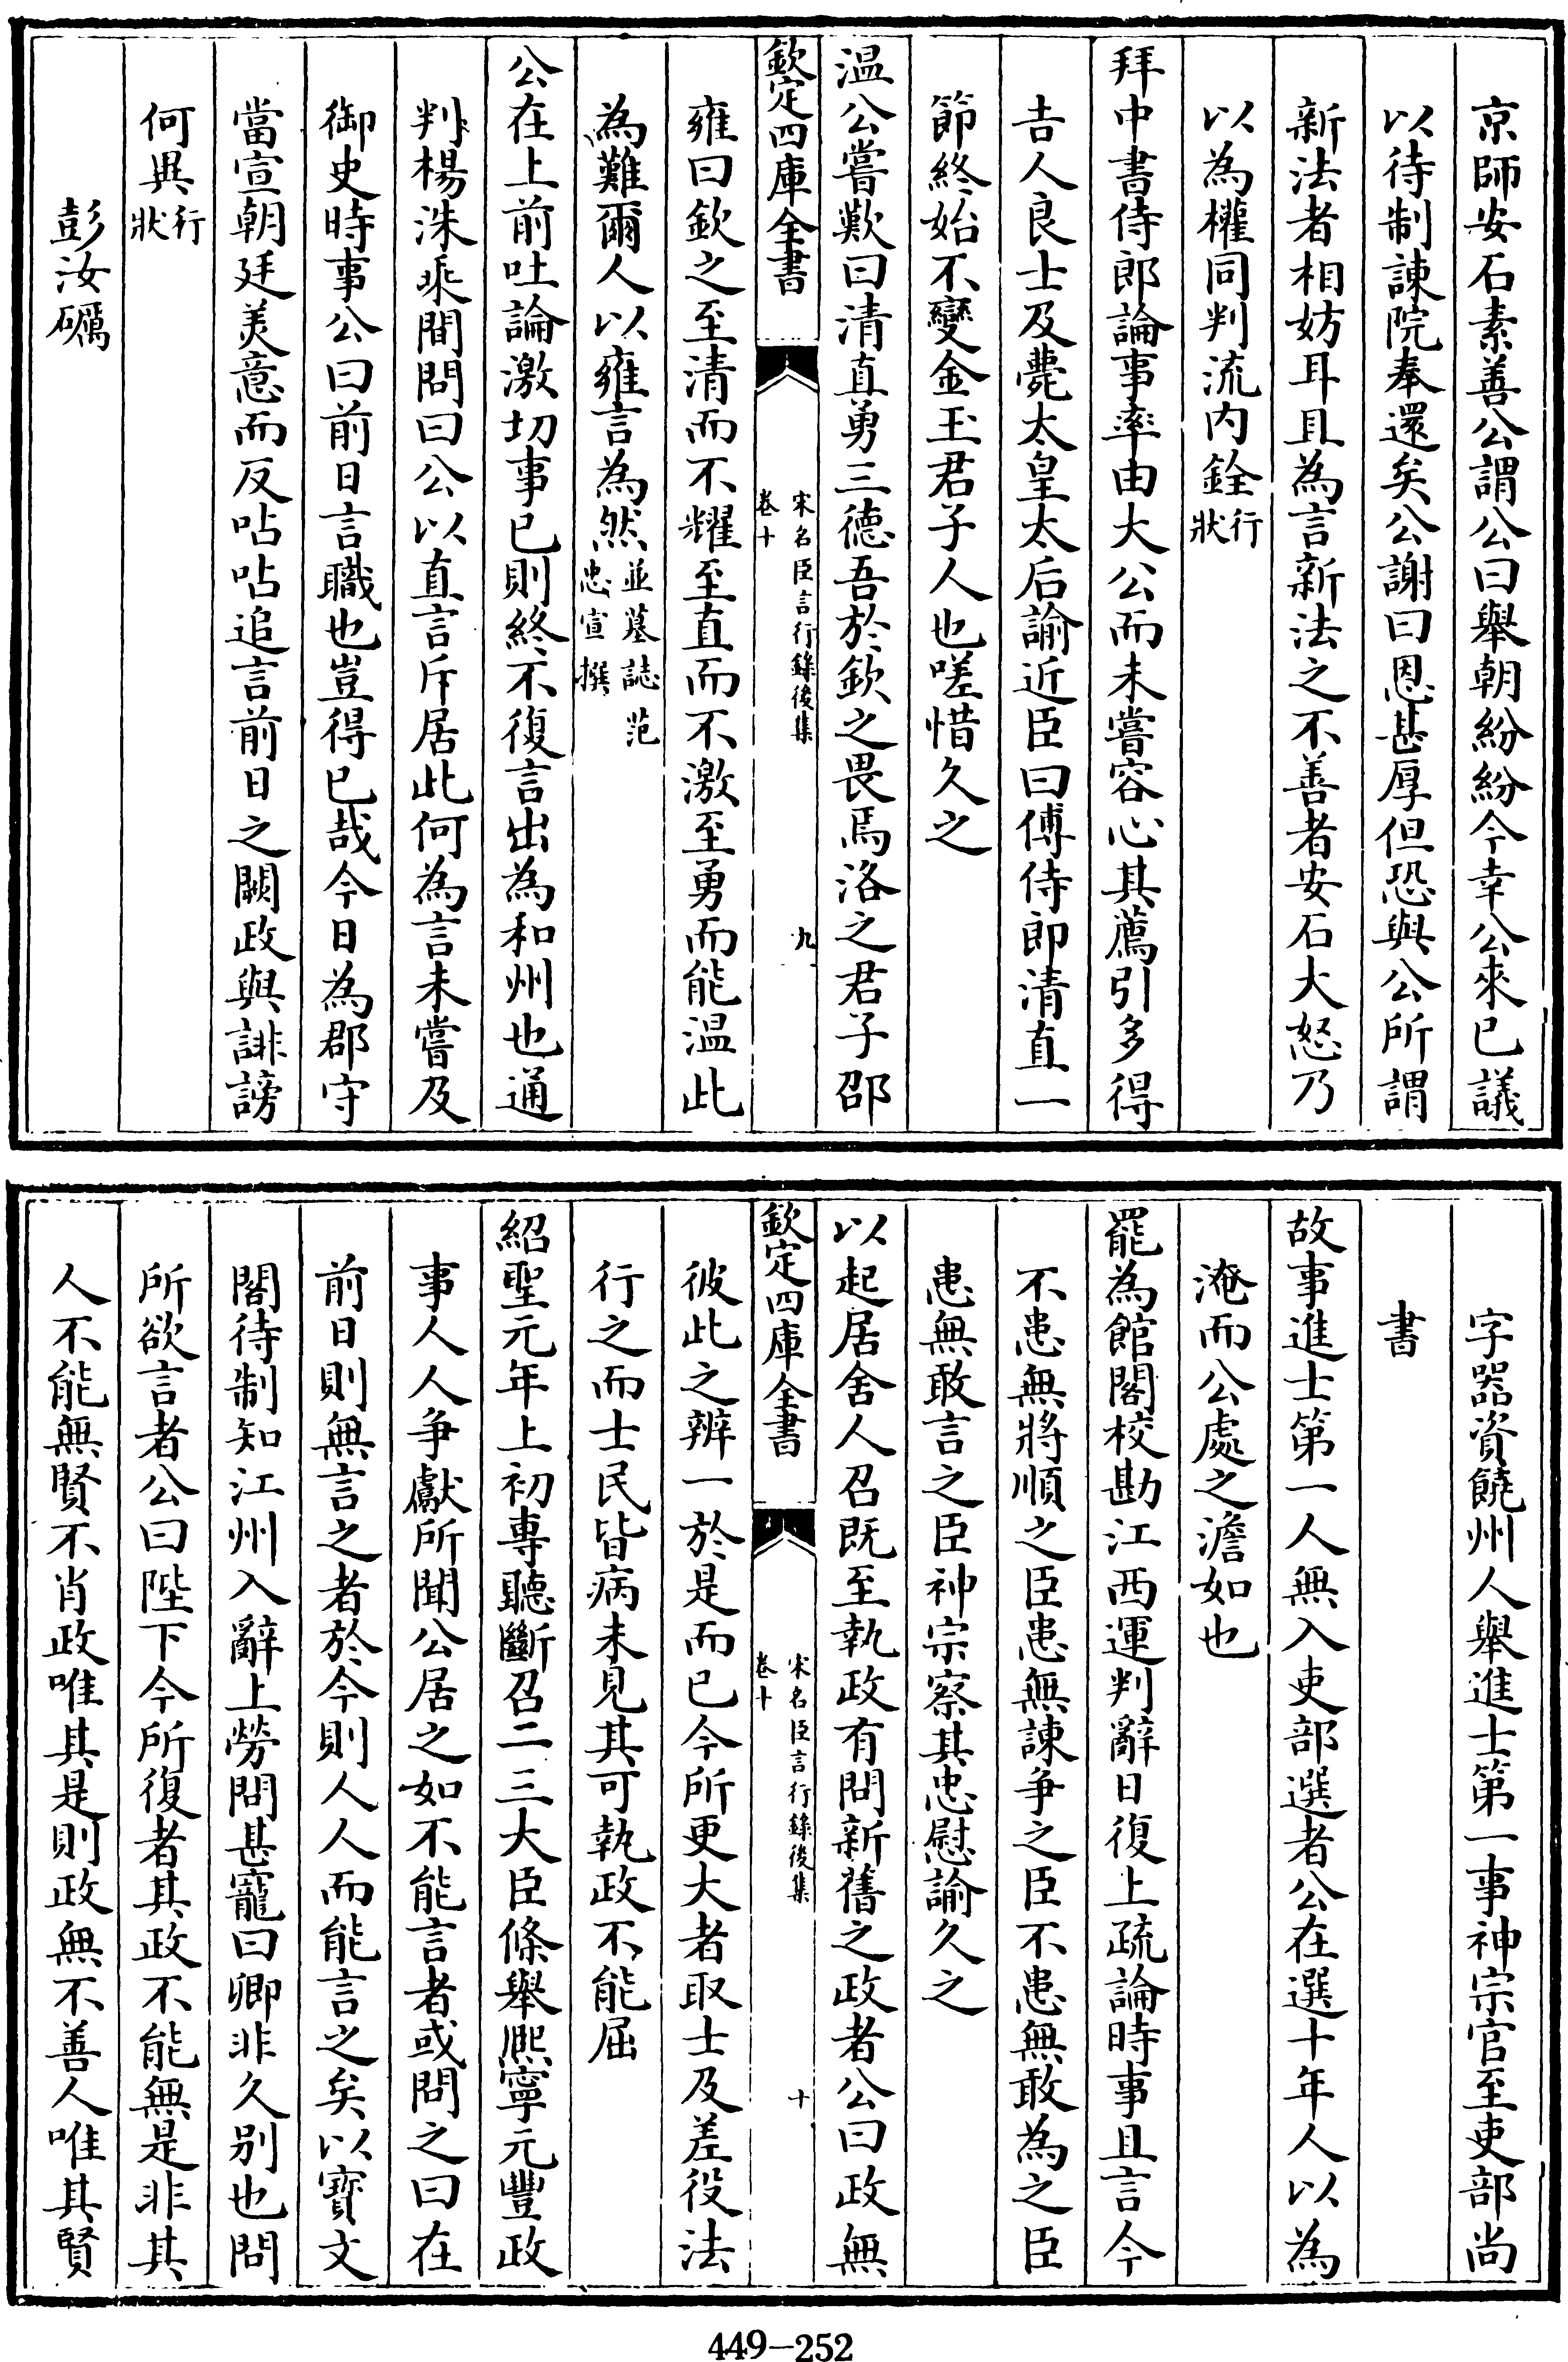 京師安石素善公謂公曰舉朝紛紛今幸公來已議
以待制諫院奉還矣公謝曰恩甚厚但恐與公所謂
新法者相妨耳且為言新法之不善者安石大怒乃
以為權同判流内銓行狀
拜中書侍郎論事率由大公而未嘗容心其薦引多得
吉人良士及薨太皇太后諭近臣曰傅侍郎清直一
節終始不變金玉君子人也嗟惜久之
温公嘗歎曰清直勇三德吾於欽之畏焉洛之君子邵
欽定四庫全書
宋名臣言行錄後集
卷十
九
雍曰欽之至清而不耀至直而不激至勇而能温此
為難爾人以雍言為然並墓誌范忠宣撰
公在上前吐論激切事已則終不復言出為和州也通
判楊洙乘間問曰公以直言斥居此何為言未嘗及
御史時事公曰前日言職也豈得已哉今日為郡守
當宣朝廷美意而反呫呫追言前日之闕政與誹謗
何異行狀
彭汝礪
字器資饒州人舉進士第一事神宗官至吏部尚
書
故事進士第一人無入吏部選者公在選十年人以為
淹而公處之澹如也
罷為館閣校勘江西運判辭日復上疏論時事且言今
不患無將順之臣患無諫争之臣不患無敢為之臣
患無敢言之臣神宗察其忠慰諭久之
以起居舍人召既至執政有問新舊之政者公曰政無
欽定四庫全書
宋名臣言行錄後集
卷十
十
彼此之辨一於是而已今所更大者取士及差役法
行之而士民皆病未見其可執政不能屈
紹聖元年上初專聽斷召二三大臣條舉熈寧元豐政
事人人争獻所聞公居之如不能言者或問之曰在
前日則無言之者於今則人人而能言之矣以寳文
閣待制知江州入辭上勞問甚寵曰卿非久别也問
所欲言者公曰陛下今所復者其政不能無是非其
人不能無賢不肖政唯其是則政無不善人唯其賢
449-252